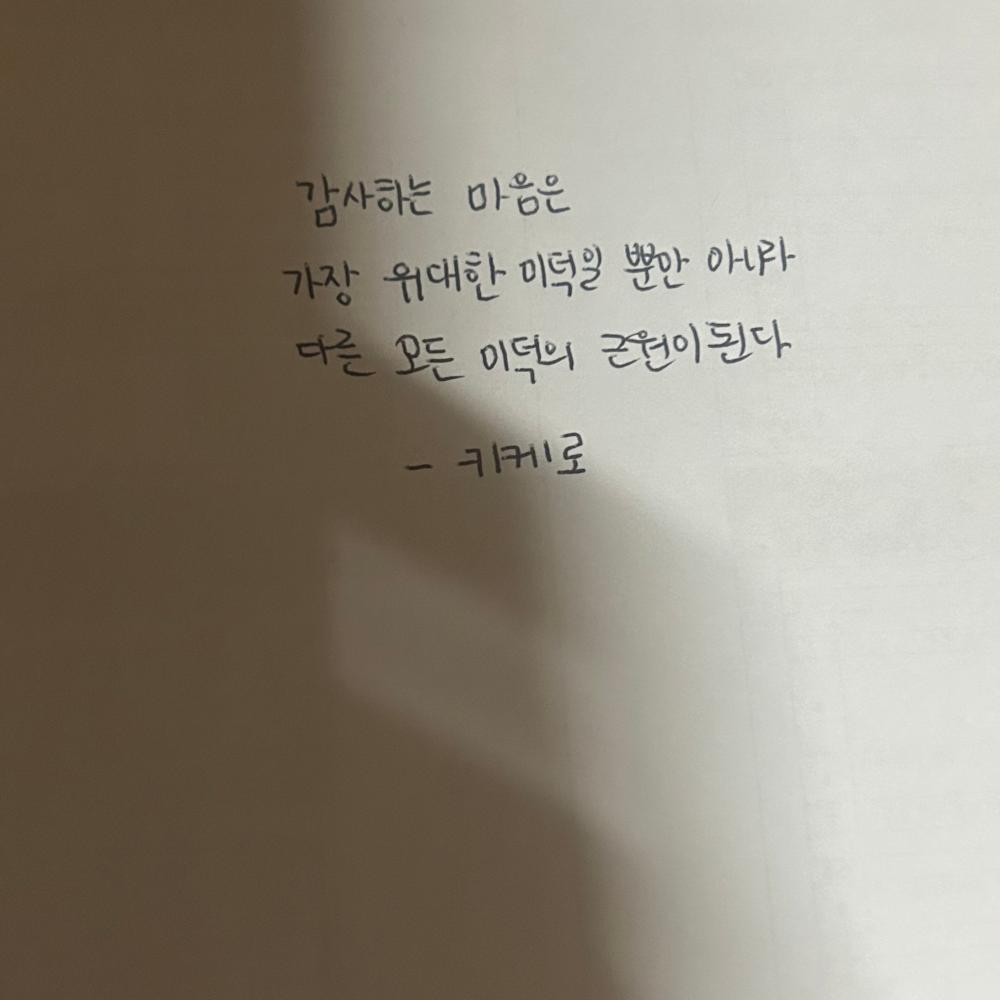 감사하는 마음은
가장 위대한 미덕일 뿐만 아니라
다른 모든 미덕의 근원이 된다
- 키케로